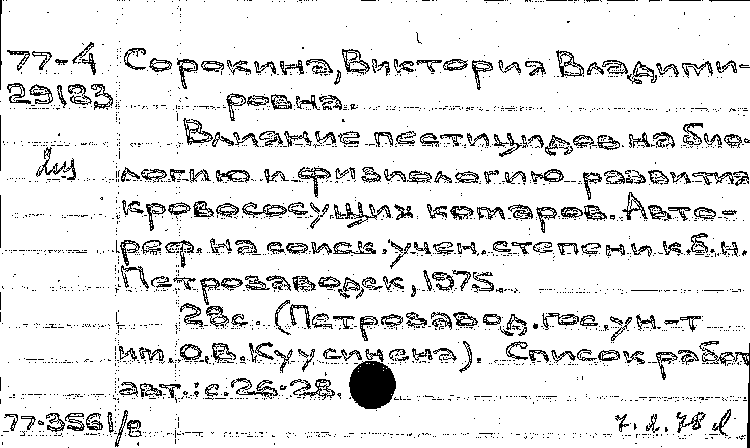 77-4 Сорокина, Виктория Владими-
29183 ровна.
Влияние пестицидов на био-
логию и физиологию развития
кровососущих комаров. Авто-
реф. на соиск. учен. степени к.б.н.
Петрозаводск, 1975.
28с. (Петрозавод. гос. ун-т
им. О.В. Куусинена). Список работ
авт.: с. 26-28.
77-3561/г